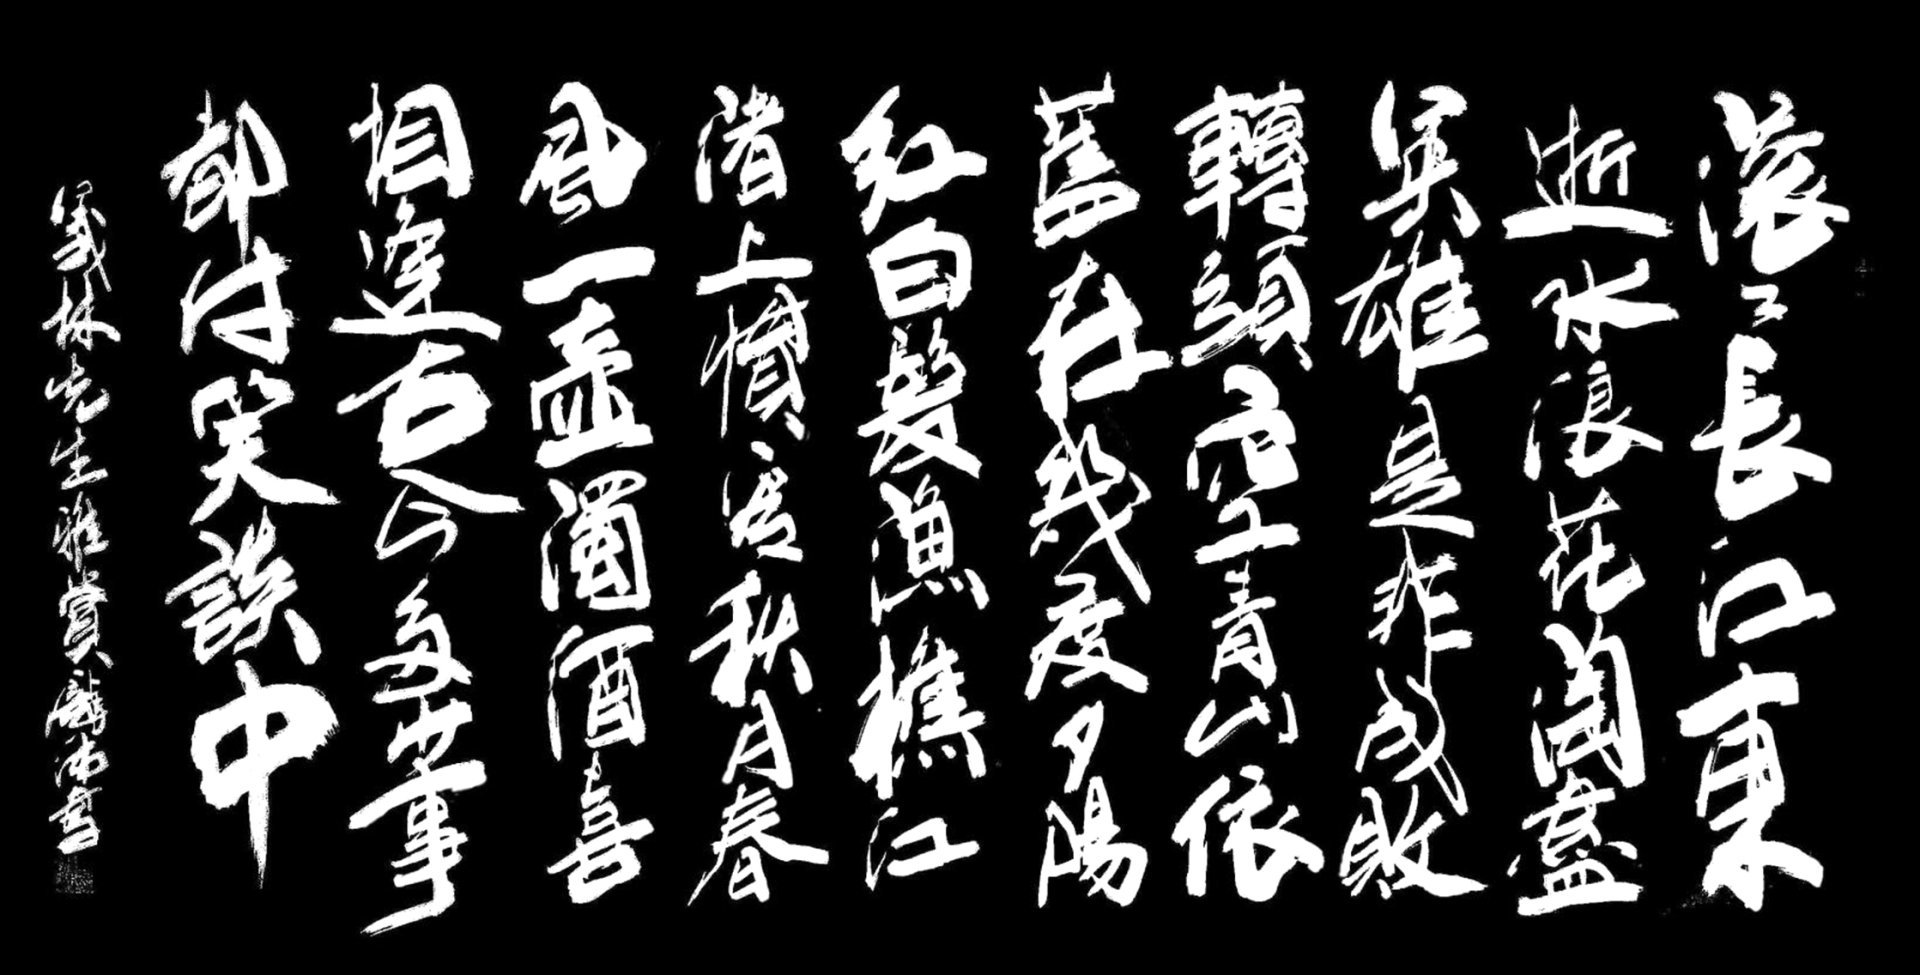 滚〻長江東
逝水浪花淘盡
英雄是非成敗
轉頭空青山依
舊在幾度夕陽
紅白髮漁樵江
渚上慣看秋月春
風一壺濁酒喜
相逢古今多少事
都付笑談中
林先生雅賞書